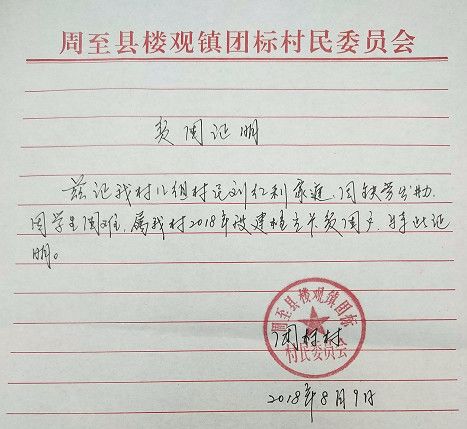 周至县楼观镇团标村民委员会
贫困证明
兹证我村八组村民刘红利家庭,因缺劳力,
因学生困难,属我村2018年被建档立卡贫困户,特此证
明。
周至县楼观镇团标
村民委员会
团标村
2018年8月9日